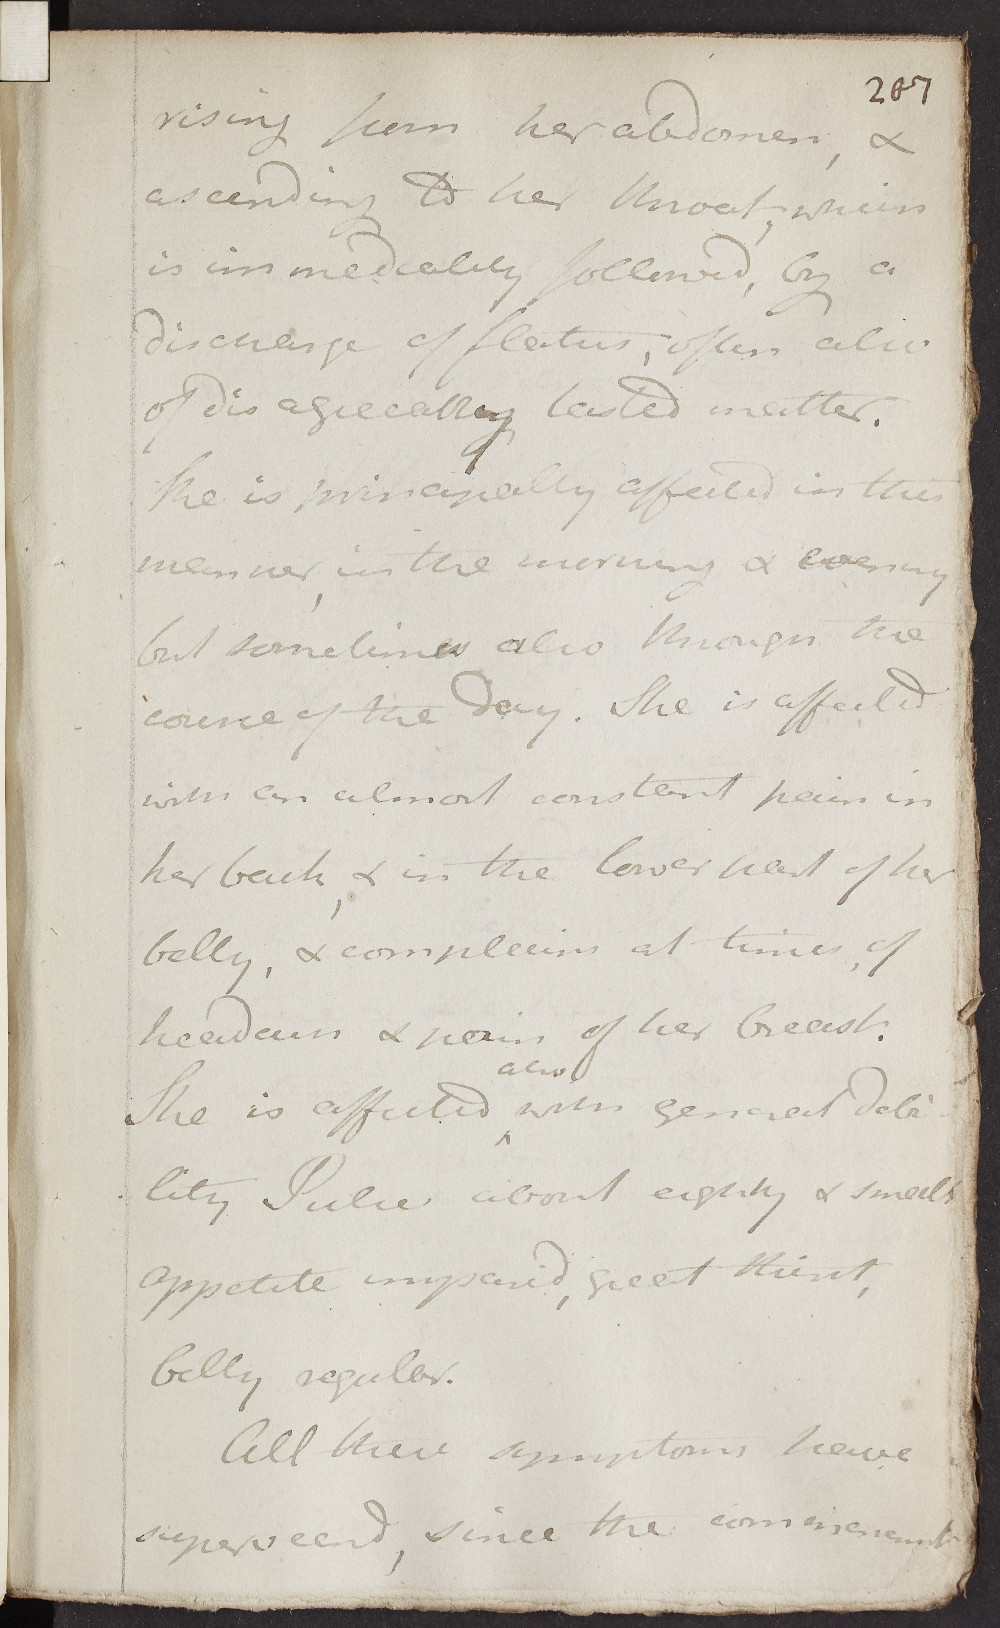 207
rising from her abdomen, &
ascending to her throat, which
is immediately followed, by a
discharge of flatus, often also
of disagreeably tasted matter.
She is principally affected in this
manner, in the morning & evening
but sometimes also through the
course of the day. She is affected
with an almost constant pain in
her back, & in the lower part of her
belly, & complains at times, of
headach & pain of her breast.
also
She is affected with general debi-
lity Pulse about eighty & small
appetite impaired, great thirst,
belly regular.
All these symptoms have
superveend, since the commencemt